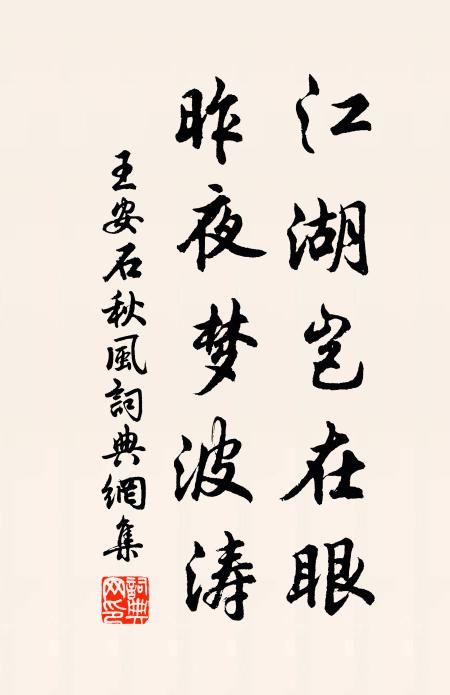 江湖岂在眼
昨夜梦波涛
王安石秋風詞典網集
詞典网印